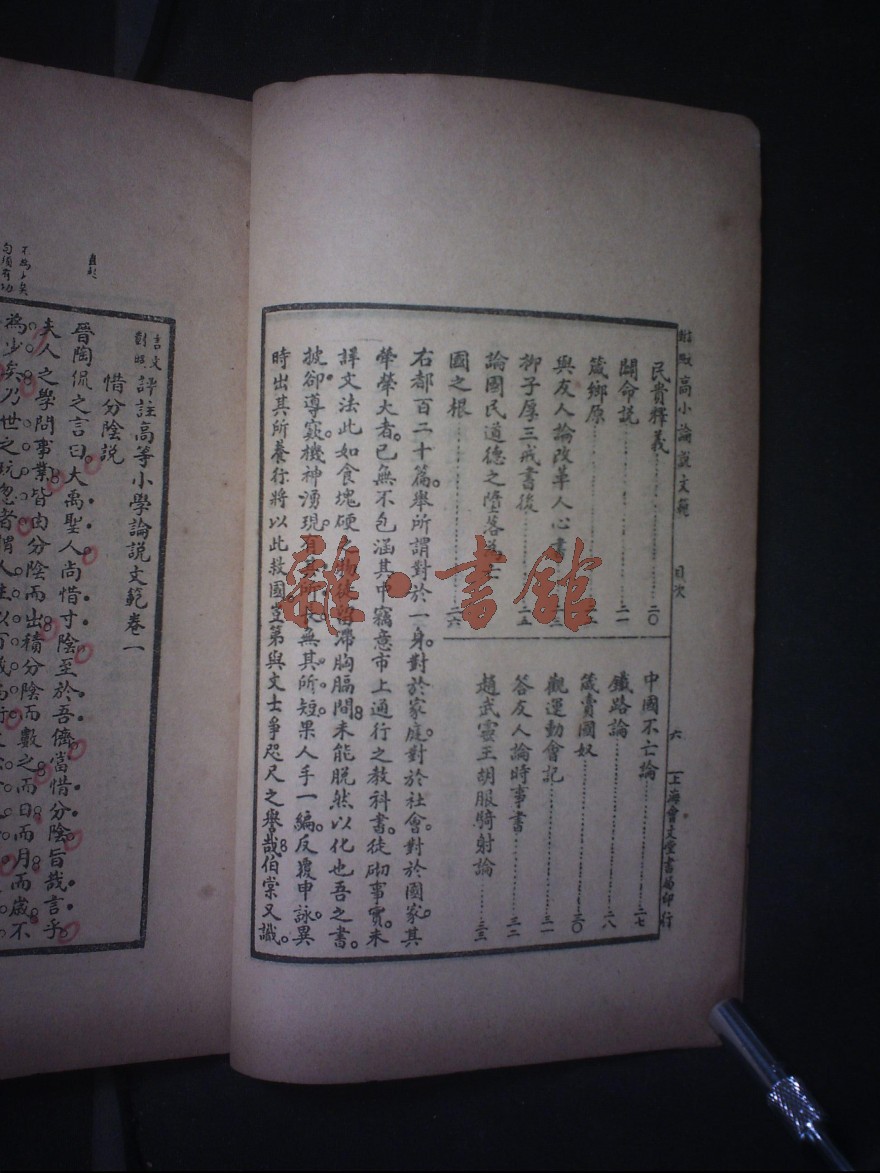 高小論說文範
目次
六
上海會文堂書局印行
民貴釋義 二〇
闢命說 二一
箴鄉原
與友人論改革人心書
柳子厚三戒書後 二五
論國民道德之墮落為亡
國之根 二六
中國不亡論 二七
鐵路論 二八
箴賣國奴 三〇
觀運動會記 三一
答友人論時事書 三二
趙武靈王胡服騎射論 三三
右都百二十篇。舉所謂對於一身。對於家庭。對於社會。對於國家。其
犖犖大者。已無不包涵其中。竊意市上通行之教科書。徒砌事實。未
譯文法。此如食塊硬物。徒留滯胸膈間。未能脫然以化也。吾之書
披卻導窾。機神湧現。有其所長。無其所短。果人手一編。反覆申詠。異
時出其所養。行將以此救國。豈第與文士爭咫尺之譽哉。伯棠又識。
雜·書館
言文
對照
評註高等小學論說文範卷一
惜分陰說
晉陶侃之言曰。大禹聖人。尚惜寸陰。至於吾儕。當惜分陰。旨哉言乎。
夫人之學問事業。皆由分陰而出。積分陰而數之。而日而月而歲。不
為少矣。乃世之玩忽者。謂人生以百歲為